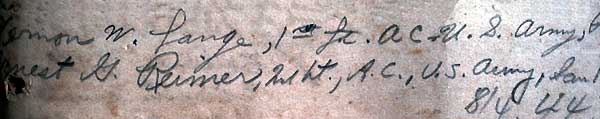 Vernon W. Lange, 1st Lt. A C. U. S. Army,
Ernest G. Reimer, 2nd Lt., A.C., U.S. Army, San
8/4 44